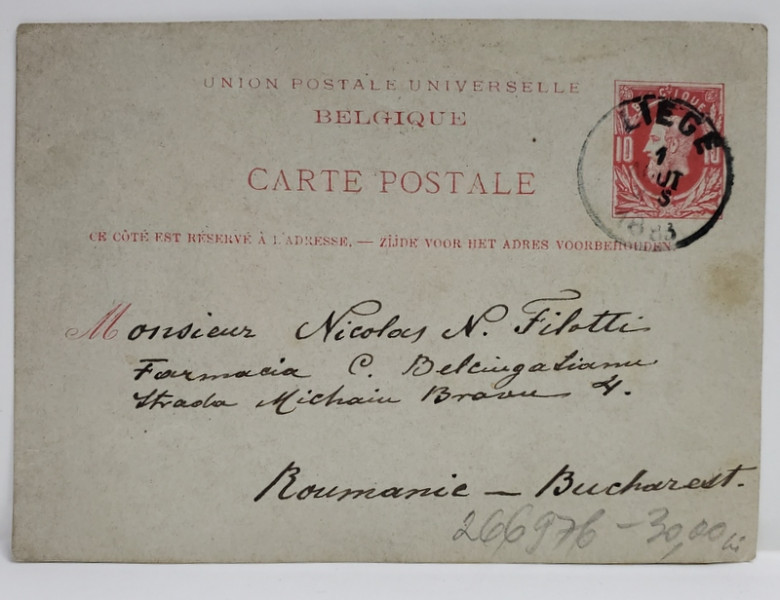 UNION POSTALE UNIVERSELLE
BELGIQUE
CARTE POSTALE
BELGIQUE
10 10
LIEGE
1
AOUT
S
1883
CE CÔTÉ EST RÉSERVÉ À L'ADRESSE, — ZIJDE VOOR HET ADRES VOORBEHOUDEN
Monsieur Nicolas N. Filotti
Farmacia C. Belciugatianu
Strada Michaiu Bravu 4.
Roumanie — Bucharest.
266976 — 30,00 lei